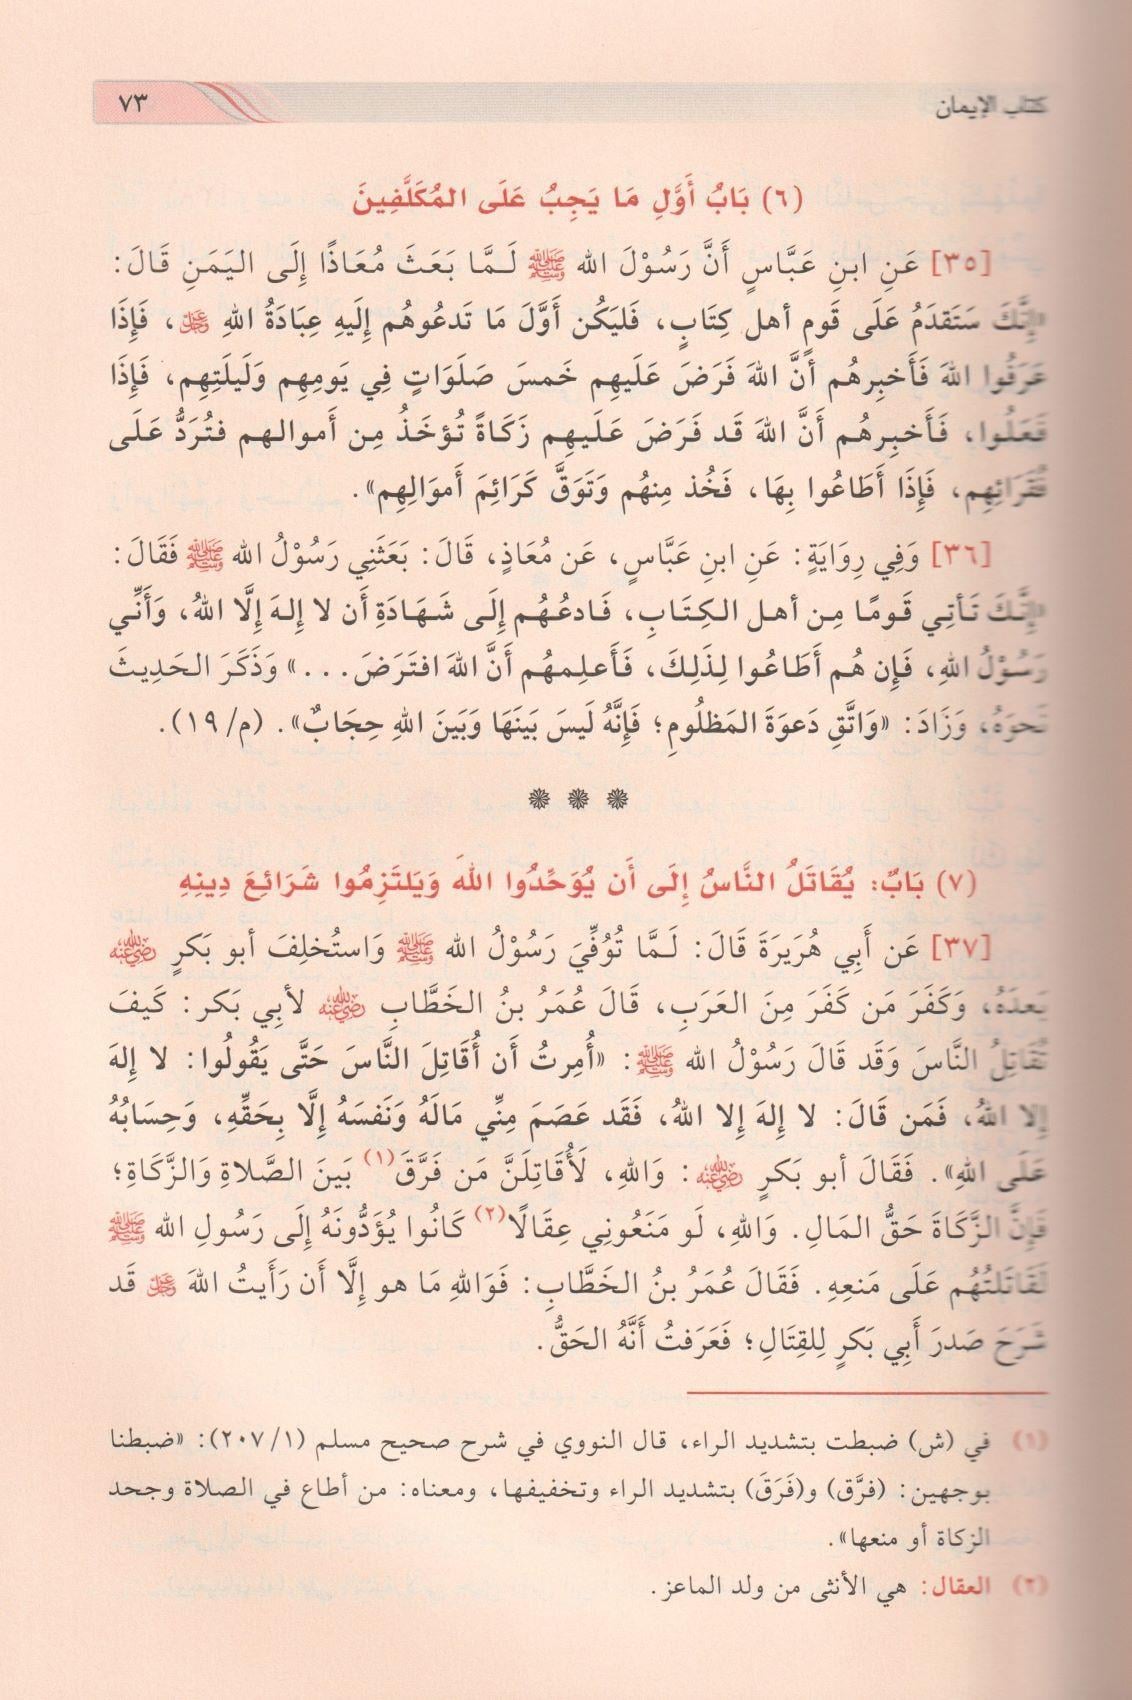 كتاب الإيمان
٧٣
(٦) بَابُ أَوَّلِ مَا يَجِبُ عَلَى المُكَلَّفِينَ
[٣٥] عَنِ ابنِ عَبَّاسٍ أَنَّ رَسُوْلَ الله ﷺ لَـمَّا بَعَثَ مُعَاذًا إِلَى اليَمَنِ قَالَ:
«إِنَّكَ سَتَقدَمُ عَلَى قَومٍ أهل كِتَابٍ، فَليَكُن أَوَّلَ مَا تَدعُوهُم إِلَيهِ عِبَادَةُ اللهِ عز وجل، فَإِذَا
عَرَفُوا اللهَ فَأَخبِرهُم أَنَّ اللهَ فَرَضَ عَلَيهِم خَمسَ صَلَوَاتٍ فِي يَومِهِم وَلَيلَتِهِم، فَإِذَا
فَعَلُوا، فَأَخبِرهُم أَنَّ اللهَ قَد فَرَضَ عَلَـيهِم زَكَاةً تُؤخَذُ مِن أَموالهم فتُرَدُّ عَلَى
فُقَرَائِهِم، فَإِذَا أَطَاعُوا بِهَا، فَخُذ مِنهُم وَتَوَقَّ كَرَائِمَ أَموَالِهِم».
[٣٦] وَفِي رِوَايَةٍ: عَنِ ابنِ عَبَّاسٍ، عَن مُعَاذٍ، قَالَ: بَعَثَنِي رَسُوْلُ الله ﷺ فَقَالَ:
«إِنَّـكَ تَـأتِي قَـومًا مِـن أهـل الـكِتَـابِ، فَـادعُـهُـم إِلَـى شَـهَـادَةِ أَن لا إِلـهَ إِلَّا اللهُ، وَأَنِّـي
رَسُوْلُ اللهِ، فَإِن هُم أَطَاعُوا لِذَلِكَ، فَأَعلِمهُم أَنَّ اللهَ افتَرَضَ...» وَذَكَرَ الحَدِيثَ
نَحوَهُ، وَزَادَ: «وَاتَّقِ دَعوَةَ المَظلُومِ؛ فَإِنَّهُ لَيسَ بَينَهَا وَبَينَ اللهِ حِجَابٌ». (م/ ١٩).
(٧) بَابٌ: يُقَاتَلُ النَّاسُ إِلَى أَن يُوَحِّدُوا اللهَ وَيَلتَزِمُوا شَرَائِعَ دِينِهِ
[٣٧] عَن أَبِي هُرَيرَةَ قَالَ: لَـمَّا تُوُفِّيَ رَسُوْلُ الله ﷺ وَاستُخلِفَ أبو بَكرٍ رضي الله عنه
بَعدَهُ، وَكَفَرَ مَن كَفَرَ مِنَ العَرَبِ، قَالَ عُمَرُ بنُ الخَطَّابِ رضي الله عنه لأبِي بَكر: كَيفَ
تُقَاتِلُ النَّاسَ وَقَد قَالَ رَسُوْلُ الله ﷺ: «أُمِرتُ أَن أُقَاتِلَ النَّاسَ حَتَّى يَقُولُوا: لا إِلهَ
إِلا اللهُ، فَمَن قَالَ: لا إِلهَ إِلا اللهُ، فَقَد عَصَمَ مِنِّي مَالَهُ وَنَفسَهُ إِلَّا بِحَقِّهِ، وَحِسَابُهُ
عَلَى اللهِ». فَقَالَ أبو بَكرٍ رضي الله عنه: وَاللهِ، لَأُقَاتِلَنَّ مَن فَرَّقَ(١) بَينَ الصَّلاةِ وَالزَّكَاةِ؛
فَإِنَّ الزَّكَاةَ حَقُّ المَالِ. وَاللهِ، لَو مَنَعُونِي عِقَالًا(٢) كَانُوا يُؤَدُّونَهُ إِلَى رَسُولِ الله ﷺ
لَقَاتَلتُهُم عَلَى مَنعِهِ. فَقَالَ عُمَرُ بنُ الخَطَّابِ: فَوَاللهِ مَا هو إِلَّا أَن رَأَيتُ اللهَ عز وجل قَد
شَرَحَ صَدرَ أَبِي بَكرٍ لِلقِتَالِ؛ فَعَرَفتُ أَنَّهُ الحَقُّ.
(١) في (ش) ضبطت بتشديد الراء، قال النووي في شرح صحيح مسلم (١/ ٢٠٧): «ضبطنا
بوجهين: (فرَّق) و(فَرَقَ) بتشديد الراء وتخفيفها، ومعناه: من أطاع في الصلاة وجحد
الزكاة أو منعها».
(٢) العقال: هي الأنثى من ولد الماعز.